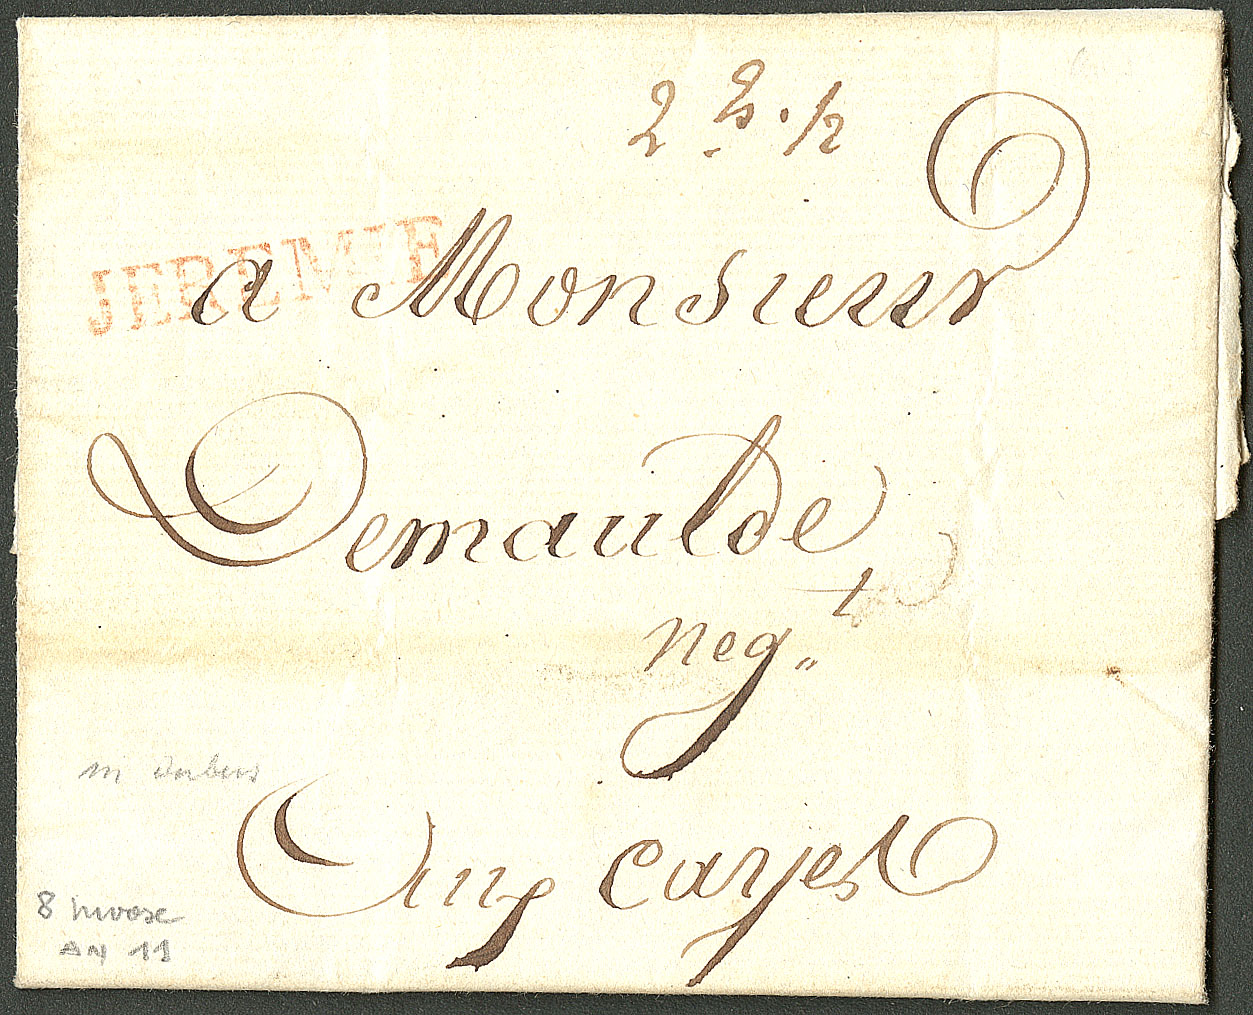 2 S. 1/2
JEREMIE
a Monsieur
Demaulde
neg.t
Aux cayes
8 nivose
AN 11